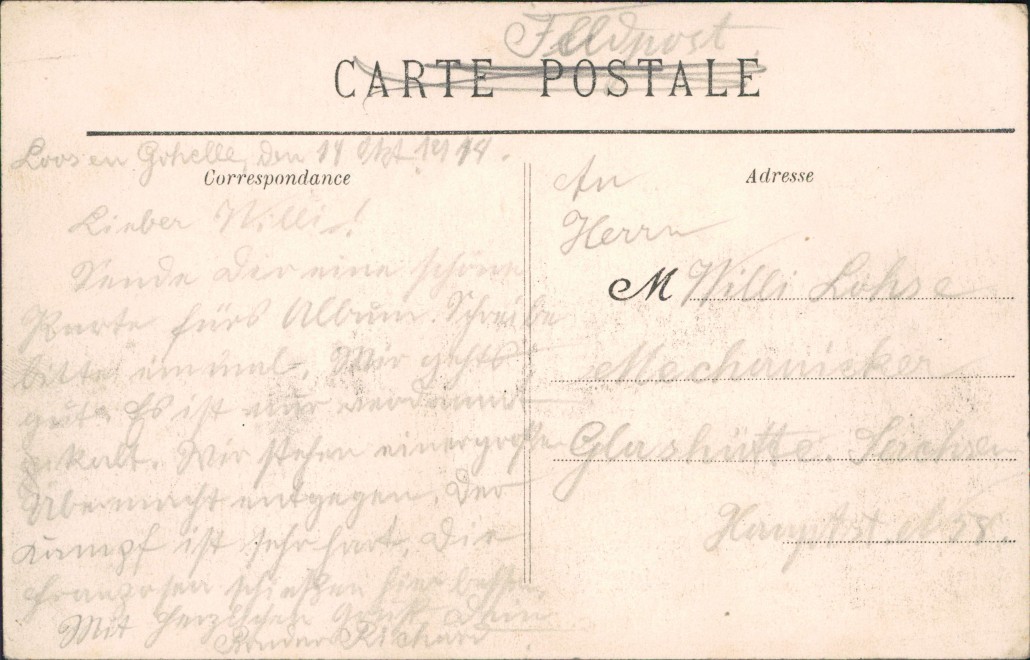 Feldpost
CARTE POSTALE
Loos en Gohelle, den 14 Okt. 1914.
Correspondance
Lieber Willi!
Sende Dir eine schöne
Karte fürs Album. Schreibe
bitte einmal. Mir gehts
gut. Es ist nur verdammt
kalt. Wir stehen einer großen
Übermacht entgegen. Der
Kampf ist sehr hart. Die
Franzosen schießen hier besser.
Mit herzlichem Gruß Dein
Bruder Richard
Adresse
An
Herrn
M Willi Lohse
Mechanicker
Glashütte. Sachsen
Hauptst. No 58.